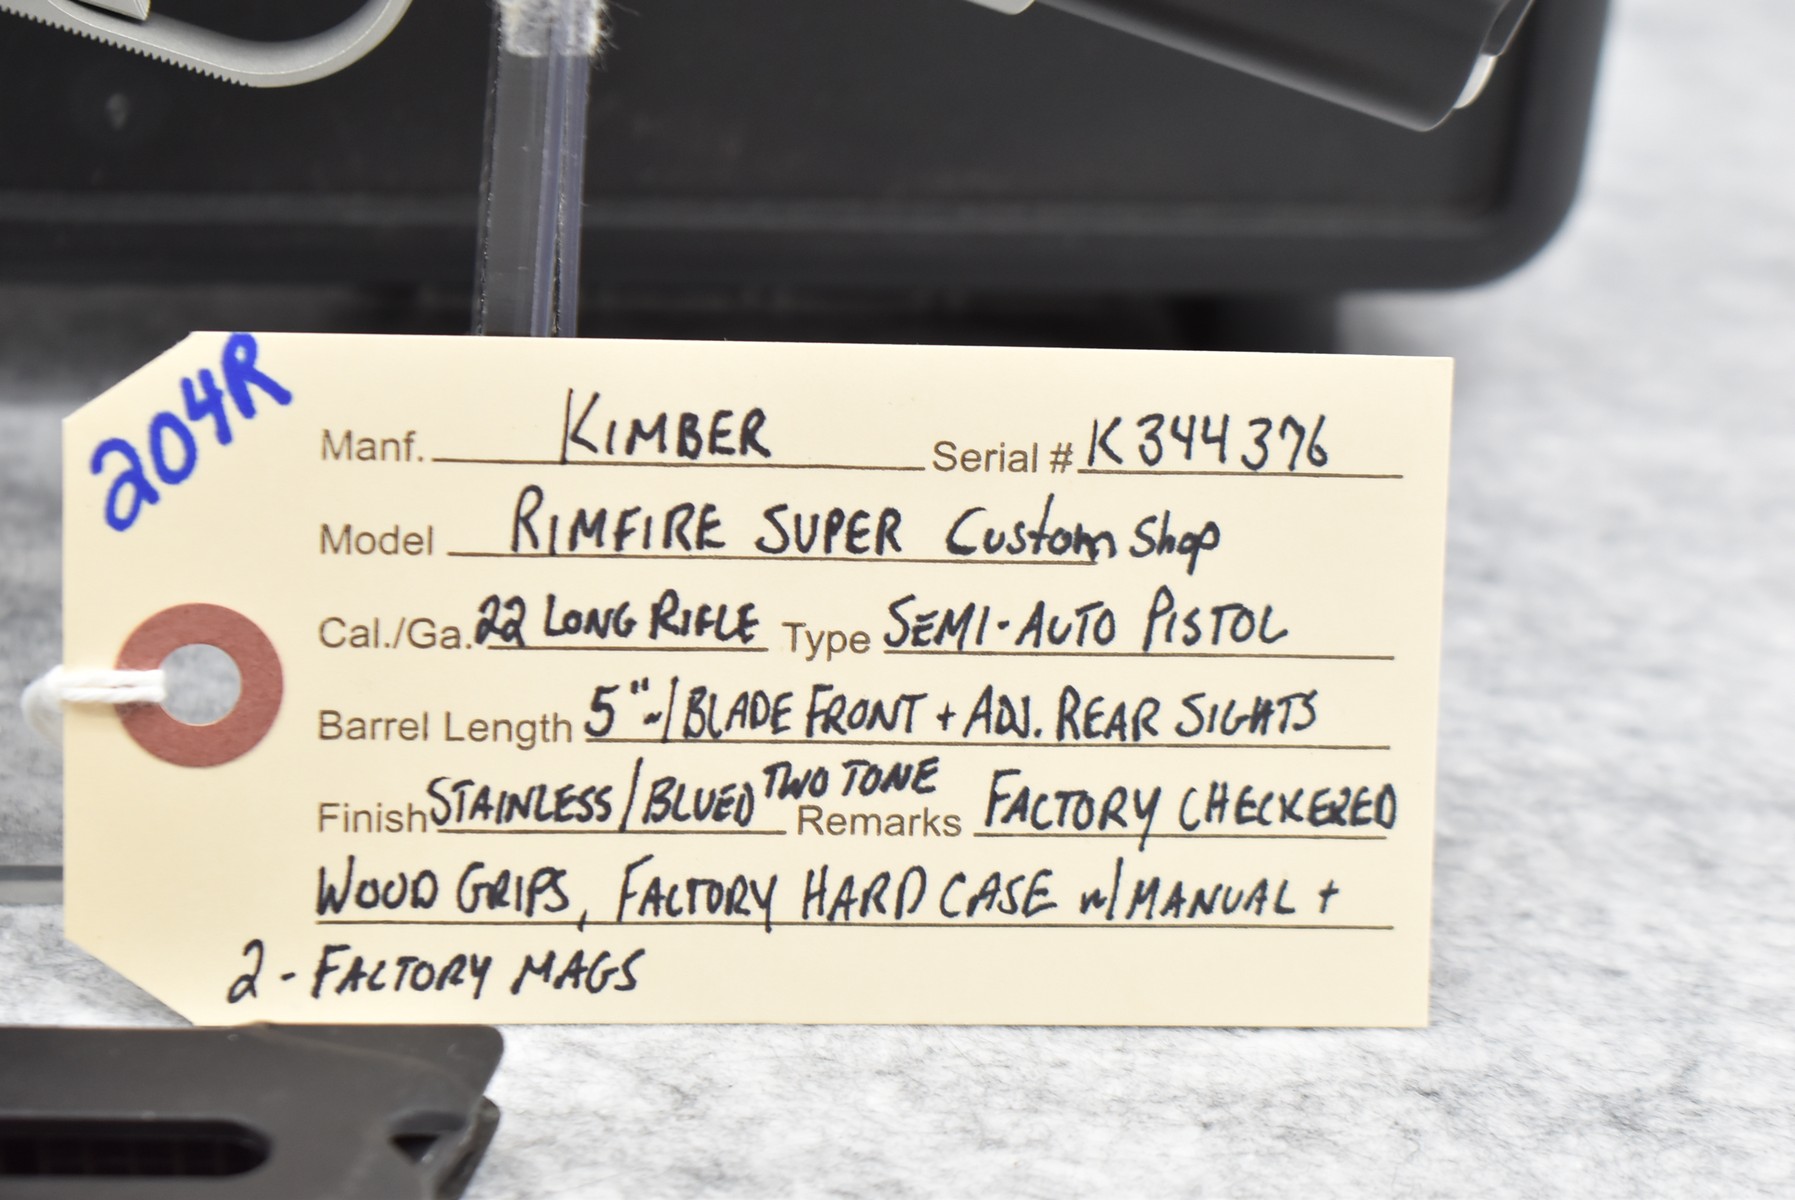 204R
Manf. KIMBER Serial # K344376
Model RIMFIRE SUPER Custom Shop
Cal./Ga. 22 LONG RIFLE Type SEMI-AUTO PISTOL
Barrel Length 5" w/ BLADE FRONT + ADJ. REAR SIGHTS
Finish STAINLESS/BLUED TWO TONE Remarks FACTORY CHECKERED
WOOD GRIPS, FACTORY HARD CASE w/ MANUAL +
2 - FACTORY MAGS